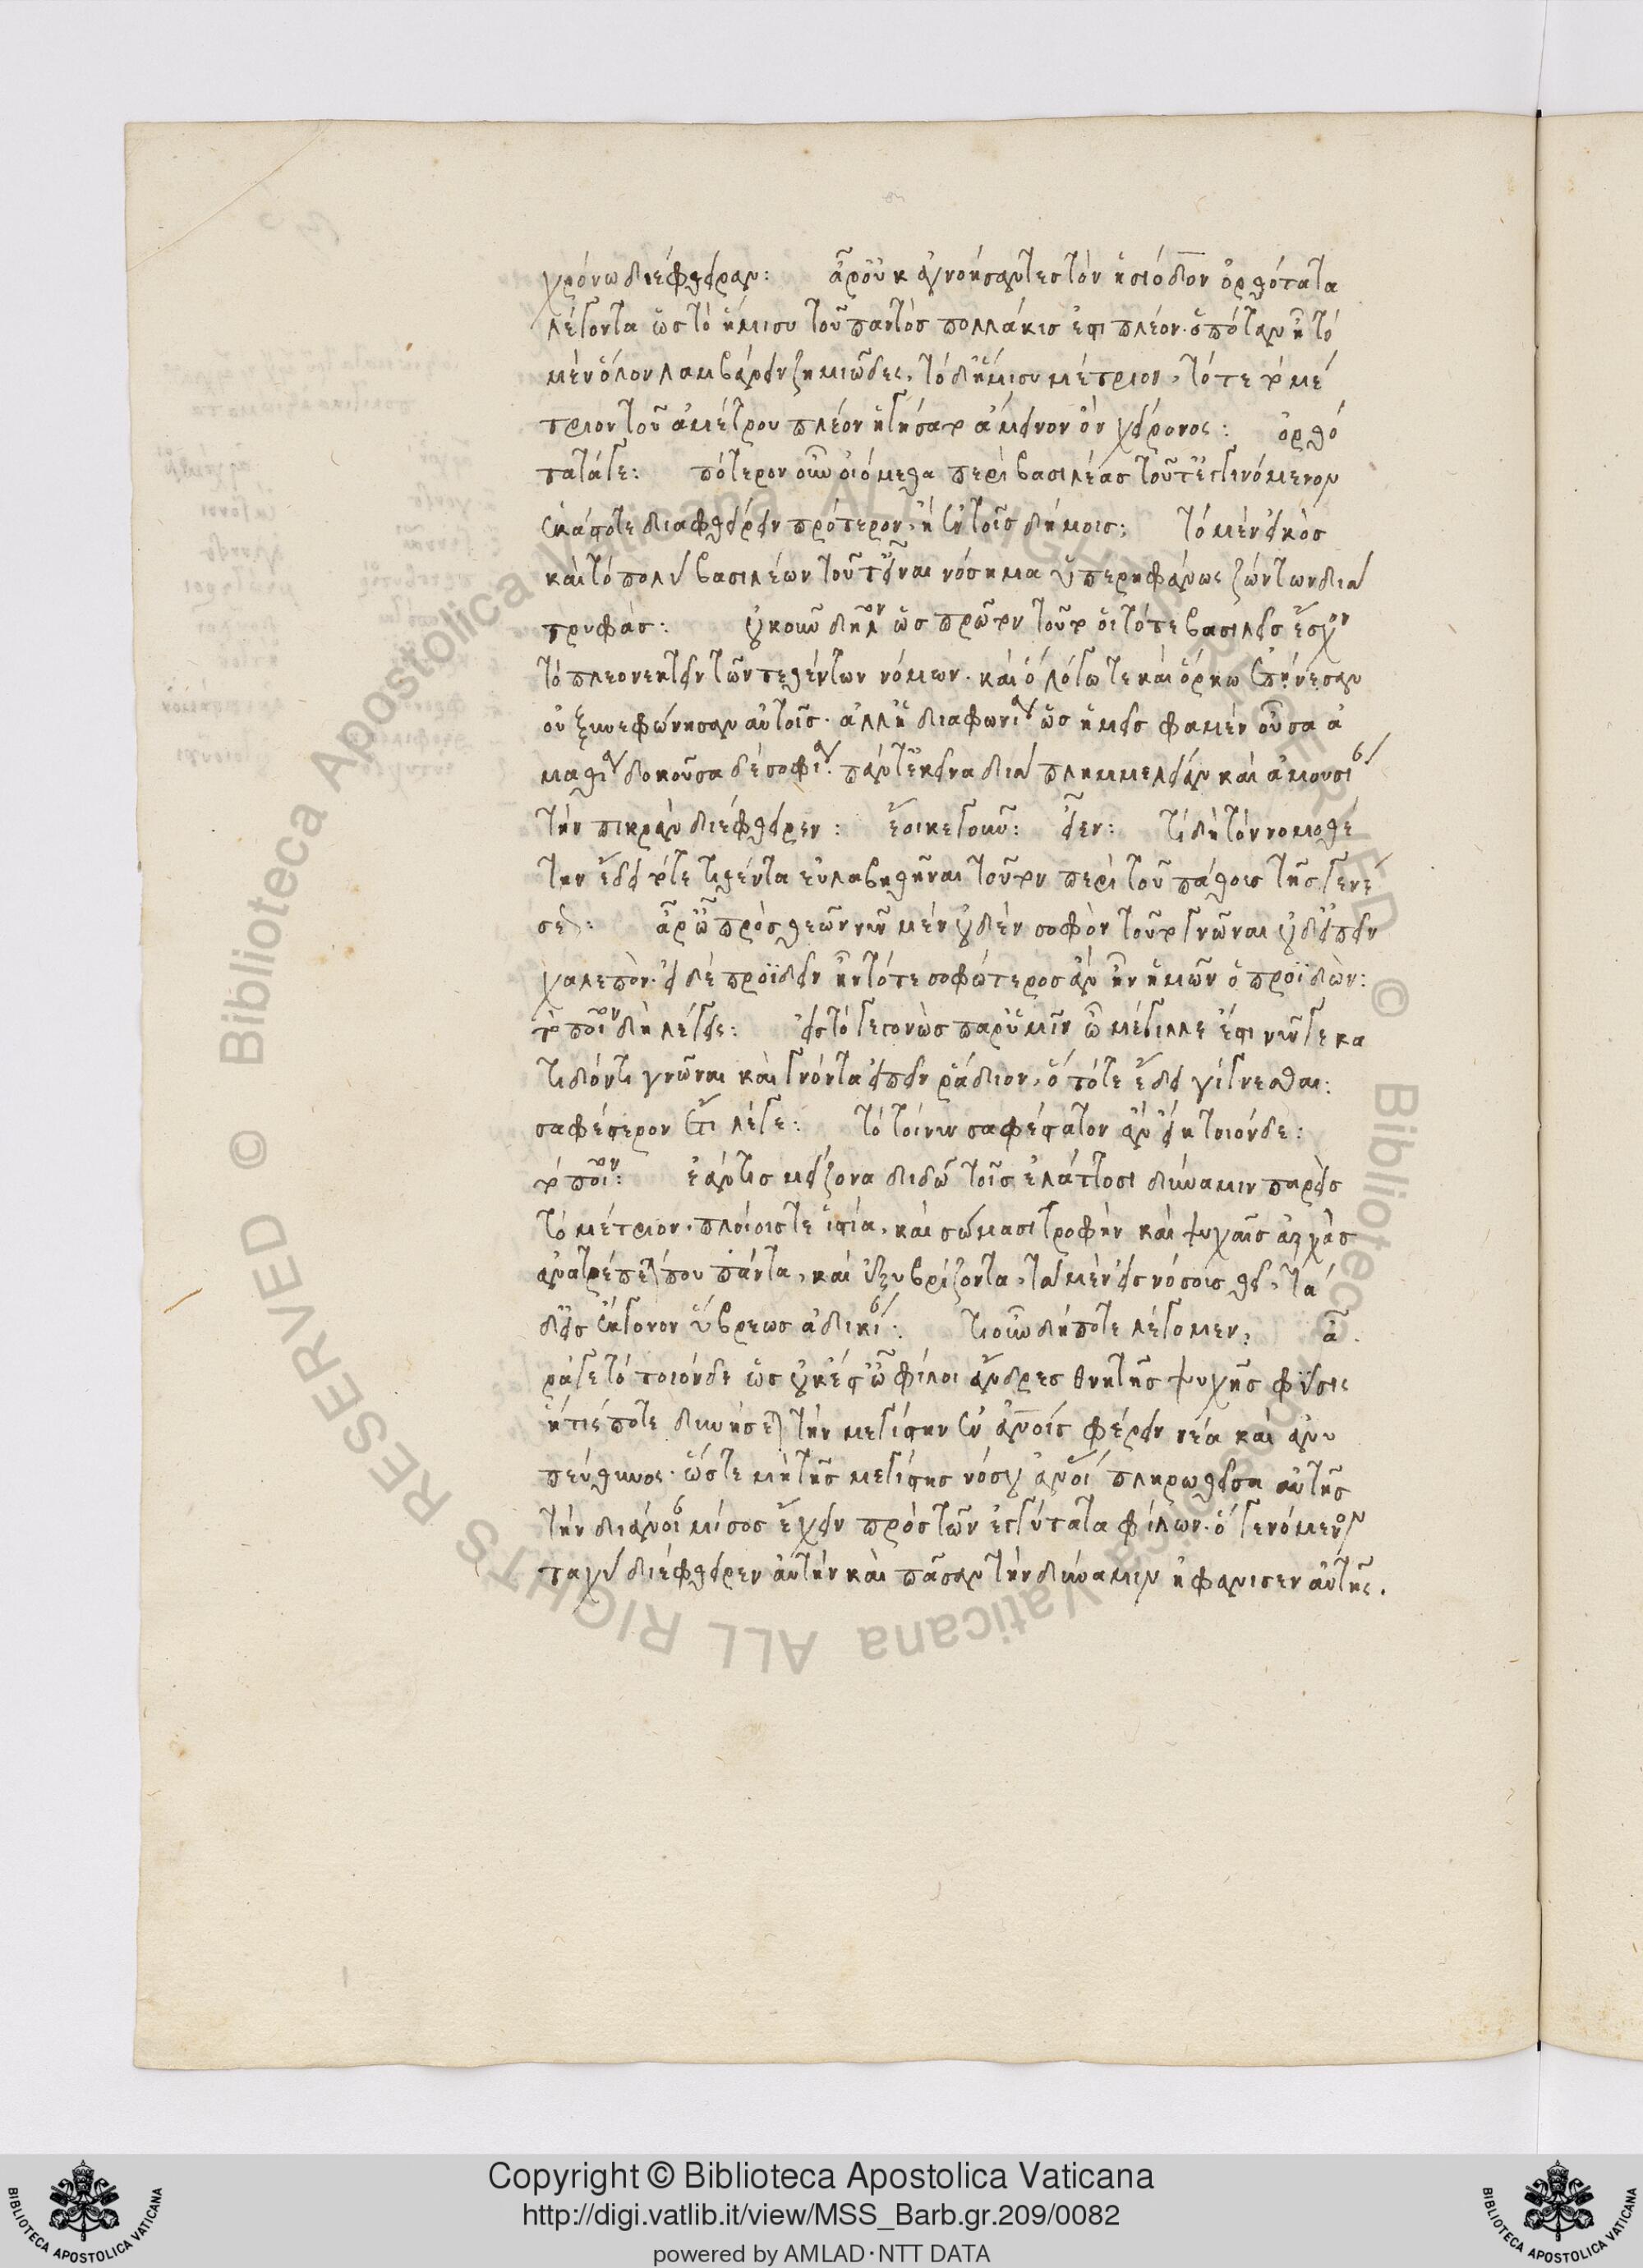 χρόνω διέφθειραν: ἆρ' οὐκ ἀγνοήσαντες τὸν ἡσίοδον ὀρθότατα
λέγοντα ὡς τὸ ἥμισυ τοῦ παντὸς πολλάκις ἐστι πλέον. ὁπόταν ἦ τὸ
μὲν ὅλον λαμβάνειν ζημιῶδες, τὸ δ' ἥμισυ μέτριον, τότε τὸ μέ
τριον τοῦ ἀμέτρου πλέον ἡγήσατο ἄμεινον ὂν χείρονος: ὀρθό
τατά γε: πότερον οὖν οἰόμεθα περὶ βασιλέας τοῦτ' ἐγγινόμενον
ἑκάστοτε διαφθείρειν πρότερον, ἢ ἐν τοῖς δήμοις; τὸ μὲν εἰκὸς
καὶ τὸ πολὺ βασιλέων τοῦτ' εἶναι νόσημα ὑπερηφάνως ζώντων διὰ
τρυφάς: οὐκοῦν δῆλον ὡς πρῶτον τοῦτο οἱ τότε βασιλεῖς ἔσχον
τὸ πλεονεκτεῖν τῶν τεθέντων νόμων. καὶ ὃ λόγω τε καὶ ὅρκω ἐπήνεσαν
οὐ ξυνεφώνησαν αὑτοῖς. ἀλλ' ἡ διαφωνία ὡς ἡμεῖς φαμὲν οὖσα ἀ
μαθία δοκοῦσα δὲ σοφία. πάντ' ἐκεῖνα διὰ πλημμέλειαν καὶ ἀμουσίας
τὴν πικρὰν διέφθειρεν: ἔοικε γοῦν: εἶεν: τί δὴ τὸν νομοθέ
την ἔδει τότε τιθέντα εὐλαβηθῆναι τοῦτον περὶ τοῦ πάθους τῆς γενέ
σεως: ἆρ' ὦ πρὸς θεῶν νῦν μὲν οὐδὲν σοφὸν τοῦτο γνῶναι οὐδ' εἰπεῖν
χαλεπὸν. εἰ δὲ προϊδεῖν ἦν τότε σοφώτερος ἂν ἦν ἡμῶν ὁ προϊδών:
τὸ ποῖον δὴ λέγεις: εἰς τὸ γεγονὼς παρ' ὑμῖν ὦ μέγιλλε ἔστι νῦν γε κα
τιδόντι γνῶναι καὶ γνόντα εἰπεῖν ῥάδιον, ὃ τότε ἔδει γίγνεσθαι:
σαφέστερον ἔτι λέγε: τὸ τοίνυν σαφέστατον ἂν εἴη τοιόνδε:
τὸ ποῖον: ἐάν τις μείζονα διδῶ τοῖς ἐλάττοσι δύναμιν παρεὶς
τὸ μέτριον. πλοίοις τε ἱστία, καὶ σώμασι τροφὴν καὶ ψυχαῖς ἀρχὰς
ἀνατρέπεται που πάντα, καὶ ἐξυβρίζοντα, τὰ μὲν εἰς νόσους θεῖ, τὰ
δ' εἰς ἔκγονον ὕβρεως ἀδικίας: τί οὖν δήποτε λέγομεν; ἆ
ρά γε τὸ τοιόνδε ὡς οὐκ ἔστ' ὦ φίλοι ἄνδρες θνητῆς ψυχῆς φύσις
ἥτις ποτε δυνήσεται τὴν μεγίστην ἐν ἀνοῖς φέρειν νέα καὶ ἀνυ
πεύθυνος. ὥστε μὴ τῆς μεγίστης νόσου ἀνοί πληρωθεῖσα αὐτῆς
τὴν διάνοιας μίσος ἔχειν πρὸς τῶν ἐγγύτατα φίλων. ὃ γενόμενον
ταχὺ διέφθειρεν αὐτὴν καὶ πᾶσαν τὴν δύναμιν ἠφάνισεν αὐτῆς.
© Biblioteca Apostolica Vaticana ALL RIGHTS RESERVED © Biblioteca Apostolica Vaticana ALL RIGHTS RESERVED
Copyright © Biblioteca Apostolica Vaticana
http://digi.vatlib.it/view/MSS_Barb.gr.209/0082
powered by AMLAD·NTT DATA
BIBLIOTECA APOSTOLICA VATICANA
BIBLIOTECA APOSTOLICA VATICANA